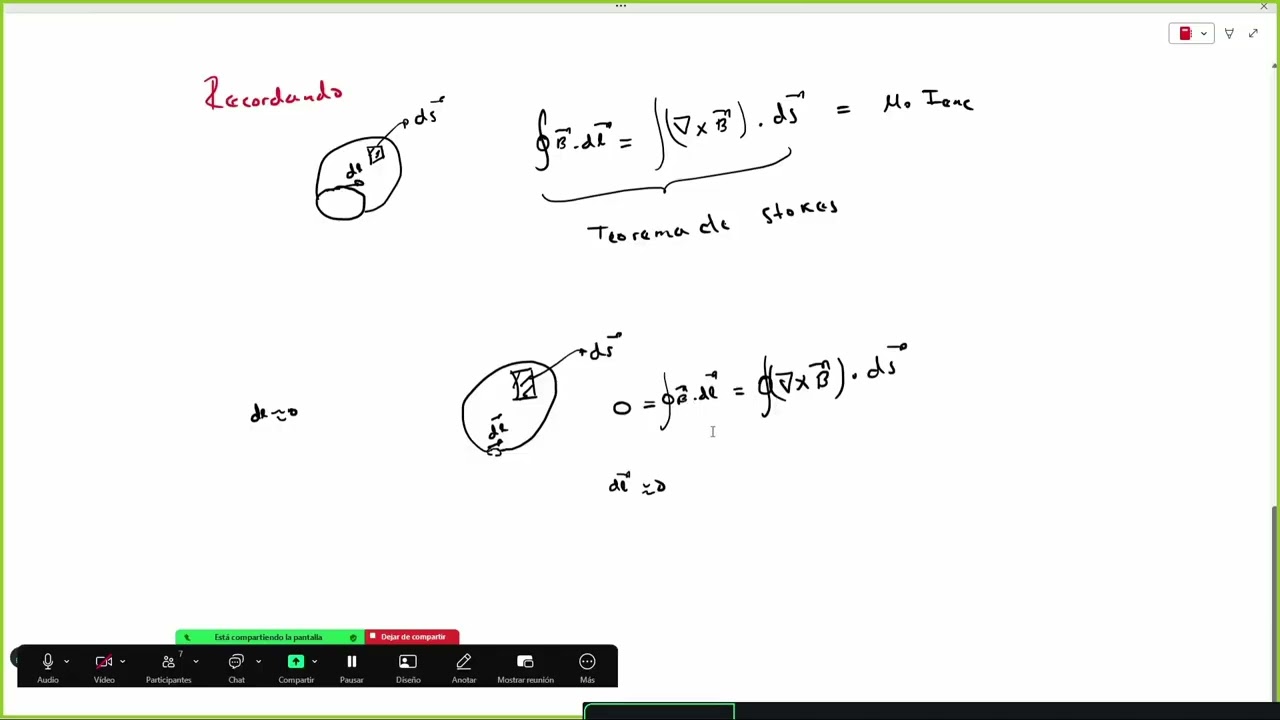 Recordando
ds⃗
dl
∮ B⃗ . dl⃗ = ∫ (∇ x B⃗) . ds⃗ = μ₀ Ienc
Teorema de stokes
ds⃗
dl ≈ 0
dl⃗
0 = ∮ B⃗ . dl⃗ = ∮ (∇ x B⃗) . ds⃗
dl⃗ ≈ 0
Está compartiendo la pantalla
Dejar de compartir
7
Audio
Vídeo
Participantes
Chat
Compartir
Pausar
Diseño
Anotar
Mostrar reunión
Más